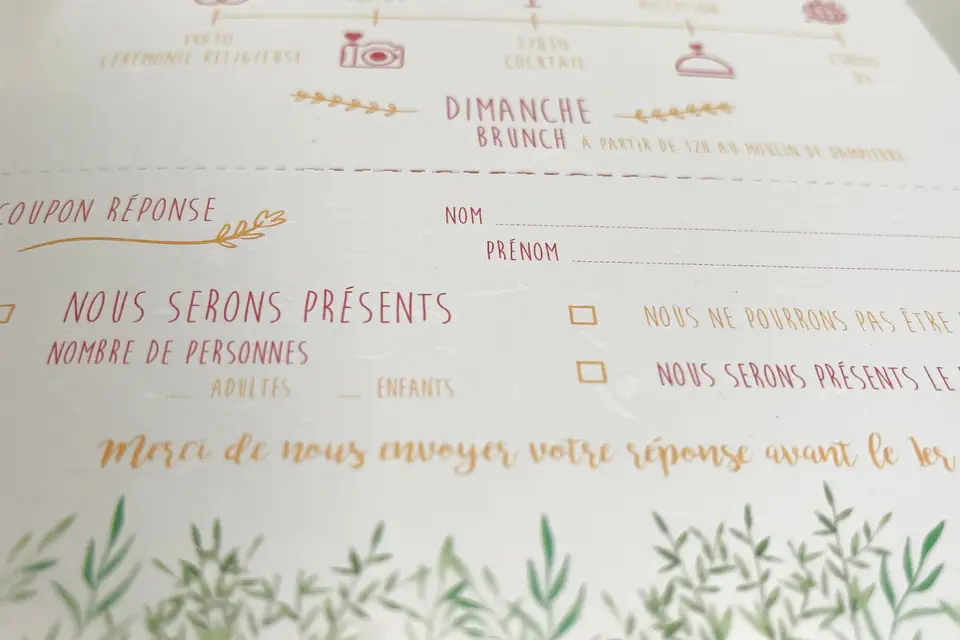 CÉRÉMONIE RELIGIEUSE
17H30
COCKTAIL
DIMANCHE
BRUNCH À PARTIR DE 12H AU MOULIN DE DAMPIERRE
COUPON RÉPONSE
NOM
PRÉNOM
NOUS SERONS PRÉSENTS
NOMBRE DE PERSONNES
__ ADULTES __ ENFANTS
NOUS NE POURRONS PAS ÊTRE
NOUS SERONS PRÉSENTS LE
Merci de nous envoyer votre réponse avant le 1er